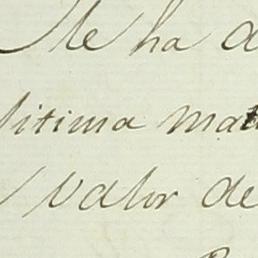 Me ha d
litima mat
Valor de